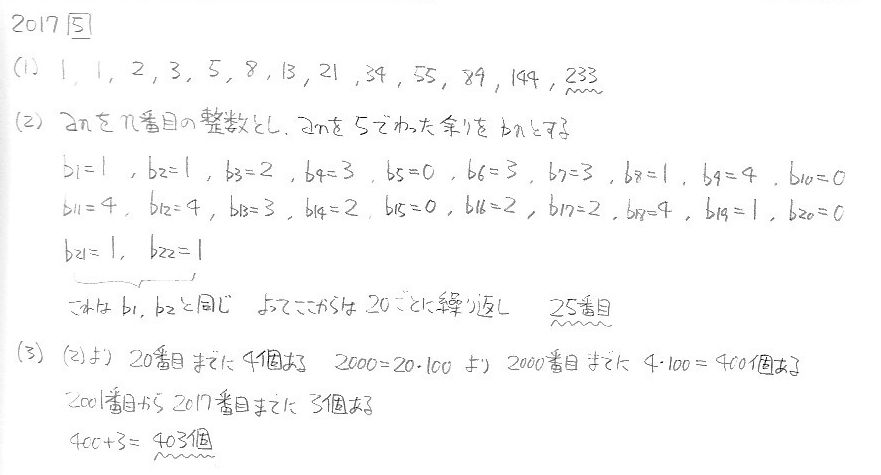 2017 5
(1) 1, 1, 2, 3, 5, 8, 13, 21, 34, 55, 89, 144, 233
(2) anをn番目の整数とし、anを5でわった余りをbnとする
b1=1, b2=1, b3=2, b4=3, b5=0, b6=3, b7=3, b8=1, b9=4, b10=0
b11=4, b12=4, b13=3, b14=2, b15=0, b16=2, b17=2, b18=4, b19=1, b20=0
b21=1, b22=1
これはb1, b2と同じ よってここからは20ごとに繰り返し 25番目
(3) (2)より 20番目までに4個ある 2000=20・100 より 2000番目までに 4・100=400個ある
2001番目から2017番目までに 3個ある
400+3=403個